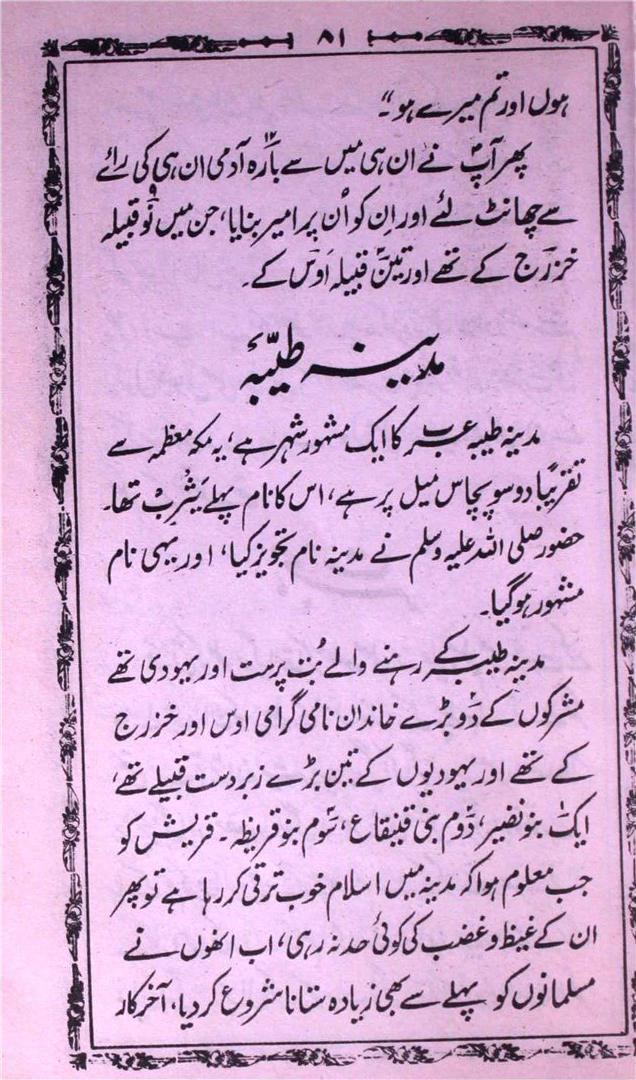 ۸۱
ہوں اور تم میرے ہو"۔
پھر آپؐ نے ان ہی میں سے بارہ آدمی ان ہی کی رائے
سے چھانٹ لئے اور اِن کو اُن پر امیر بنایا، جن میں نو قبیلہ
خزرج کے تھے اور تین قبیلہ اوس کے۔
مدینہ طیّبہ
مدینہ طیبہ عرب کا ایک مشہور شہر ہے، یہ مکہ معظمہ سے
تقریبًا دو سو پچاس میل پر ہے، اس کا نام پہلے یَثْرِبْ تھا۔
حضور صلی اللہ علیہ وسلم نے مدینہ نام تجویز کیا، اور یہی نام
مشہور ہو گیا۔
مدینہ طیبہ کے رہنے والے بُت پرست اور یہودی تھے
مشرکوں کے دو بڑے خاندان نامی گرامی اوس اور خزرج
کے تھے اور یہودیوں کے تین بڑے زبردست قبیلے تھے،
ایک بنو نضیر، دوم بنی قینقاع، سوم بنو قریظہ۔ قریش کو
جب معلوم ہوا کہ مدینہ میں اسلام خوب ترقی کر رہا ہے تو پھر
ان کے غیظ و غضب کی کوئی حد نہ رہی، اب انھوں نے
مسلمانوں کو پہلے سے بھی زیادہ ستانا شروع کر دیا، آخر کار